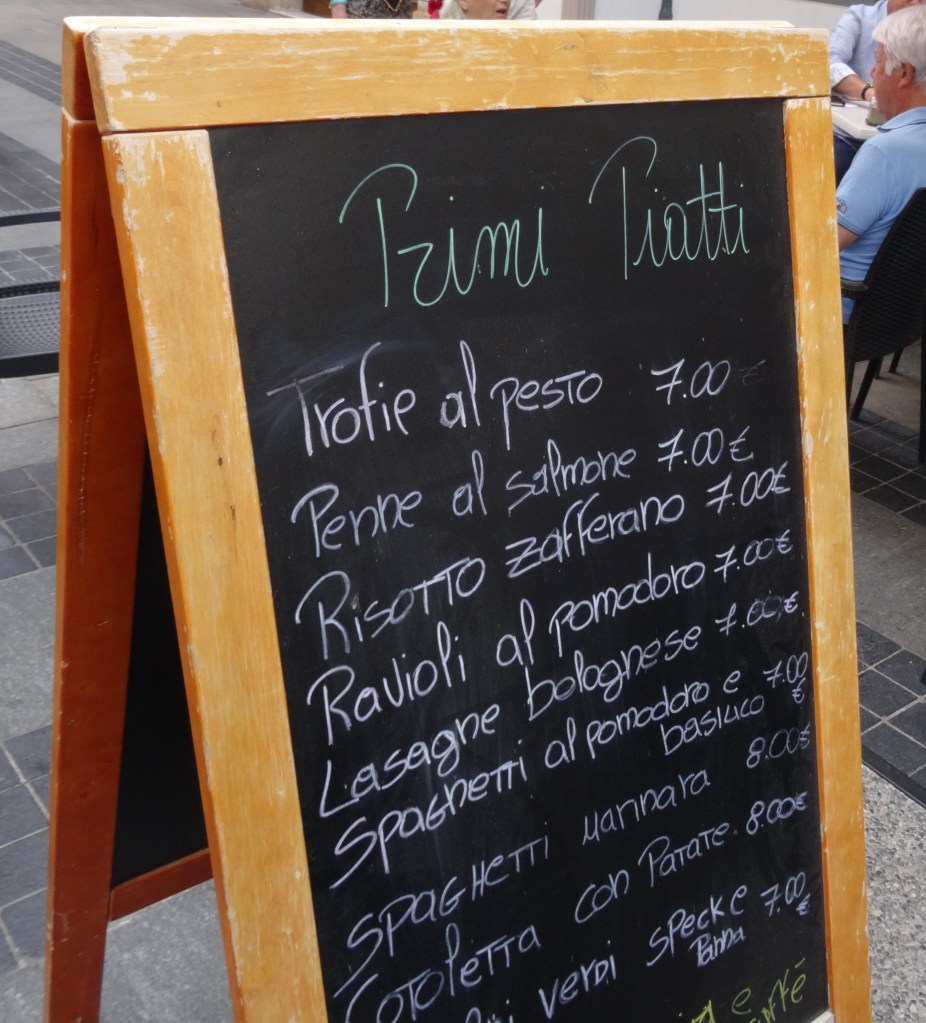 Primi Piatti
Trofie al pesto 7.00 €
Penne al salmone 7.00 €
Risotto zafferano 7.00€
Ravioli al pomodoro 7.00€
Lasagne bolognese 7.00€
Spaghetti al pomodoro e 7.00
basilico €
Spaghetti Marinara 8.00€
Cotoletta con Patate 8.00€
verdi speck e 7.00
Panna €
e